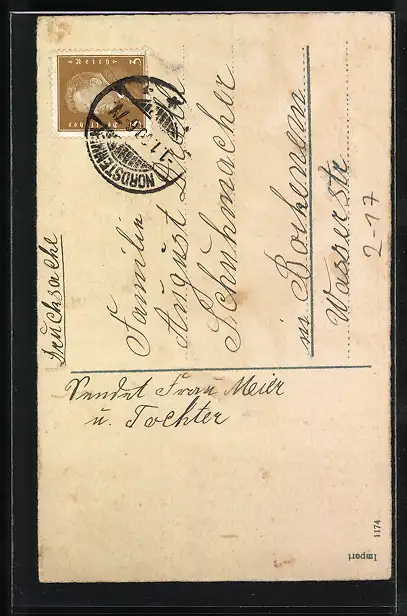 Drucksache
3 Deutsches Reich 3
NORDSTEMMEN
Familie
August
Schuhmacher
in Bockenem
Wasserstr.
2-17
Sendet Frau Meier
u. Tochter
1174
Import